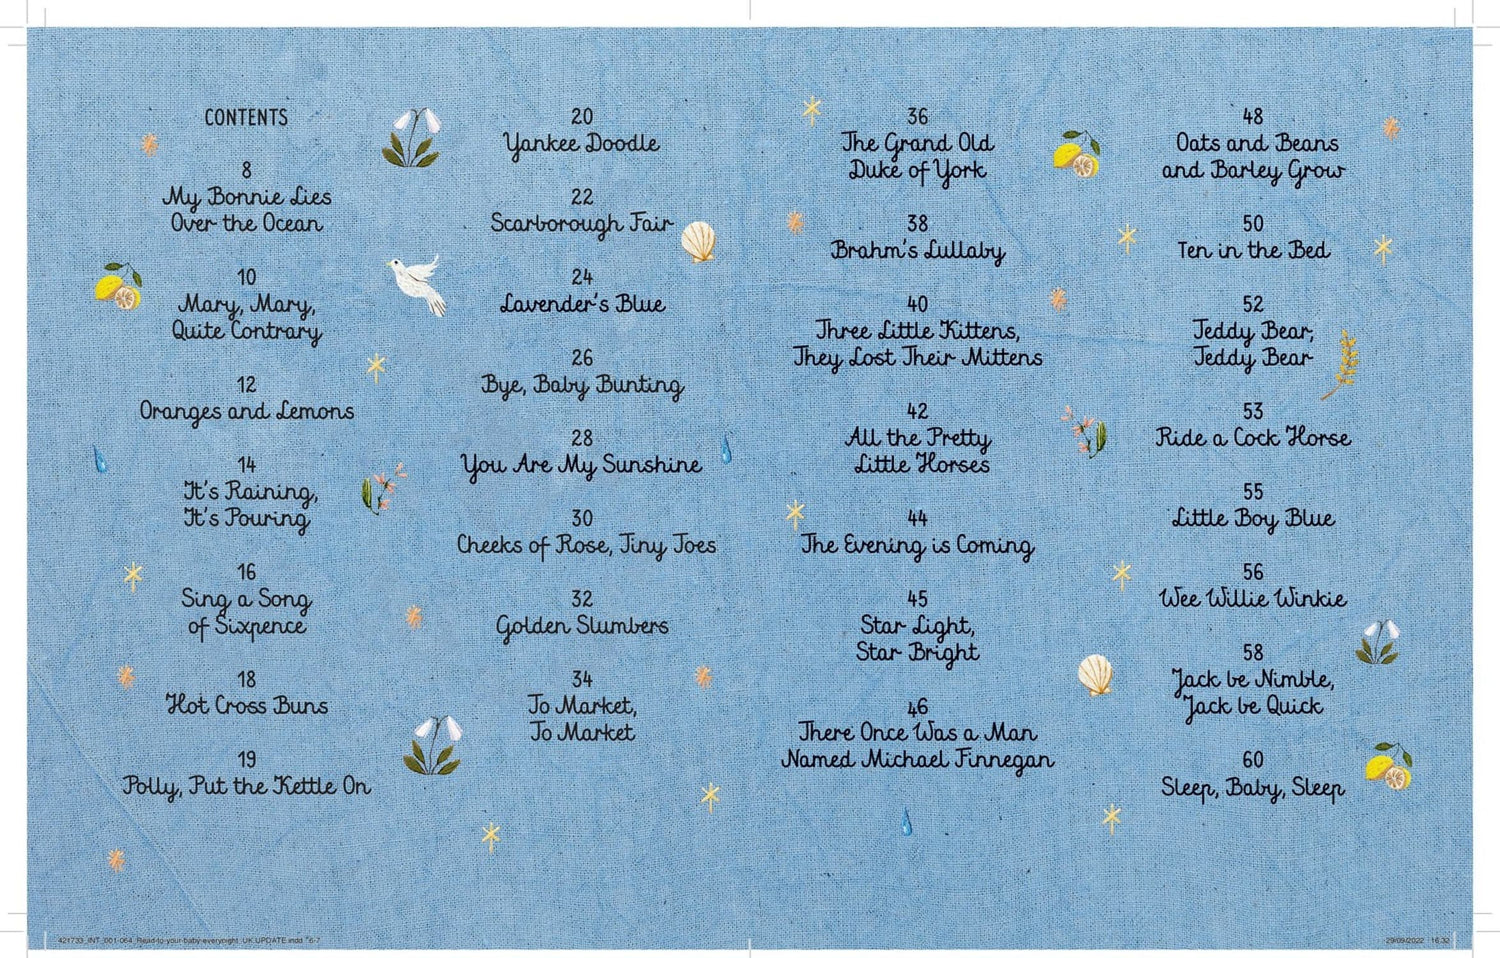 CONTENTS
8
My Bonnie Lies
Over the Ocean
10
Mary, Mary,
Quite Contrary
12
Oranges and Lemons
14
It's Raining,
It's Pouring
16
Sing a Song
of Sixpence
18
Hot Cross Buns
19
Polly, Put the Kettle On
20
Yankee Doodle
22
Scarborough Fair
24
Lavender's Blue
26
Bye, Baby Bunting
28
You Are My Sunshine
30
Cheeks of Rose, Tiny Toes
32
Golden Slumbers
34
To Market,
To Market
36
The Grand Old
Duke of York
38
Brahm's Lullaby
40
Three Little Kittens,
They Lost Their Mittens
42
All the Pretty
Little Horses
44
The Evening is Coming
45
Star Light,
Star Bright
46
There Once Was a Man
Named Michael Finnegan
48
Oats and Beans
and Barley Grow
50
Ten in the Bed
52
Teddy Bear,
Teddy Bear
53
Ride a Cock Horse
55
Little Boy Blue
56
Wee Willie Winkie
58
Jack be Nimble,
Jack be Quick
60
Sleep, Baby, Sleep
421733_INT_001-064_Read-to-your-baby-everynight_UK UPDATE.indd 6-7
29/09/2022 16:32